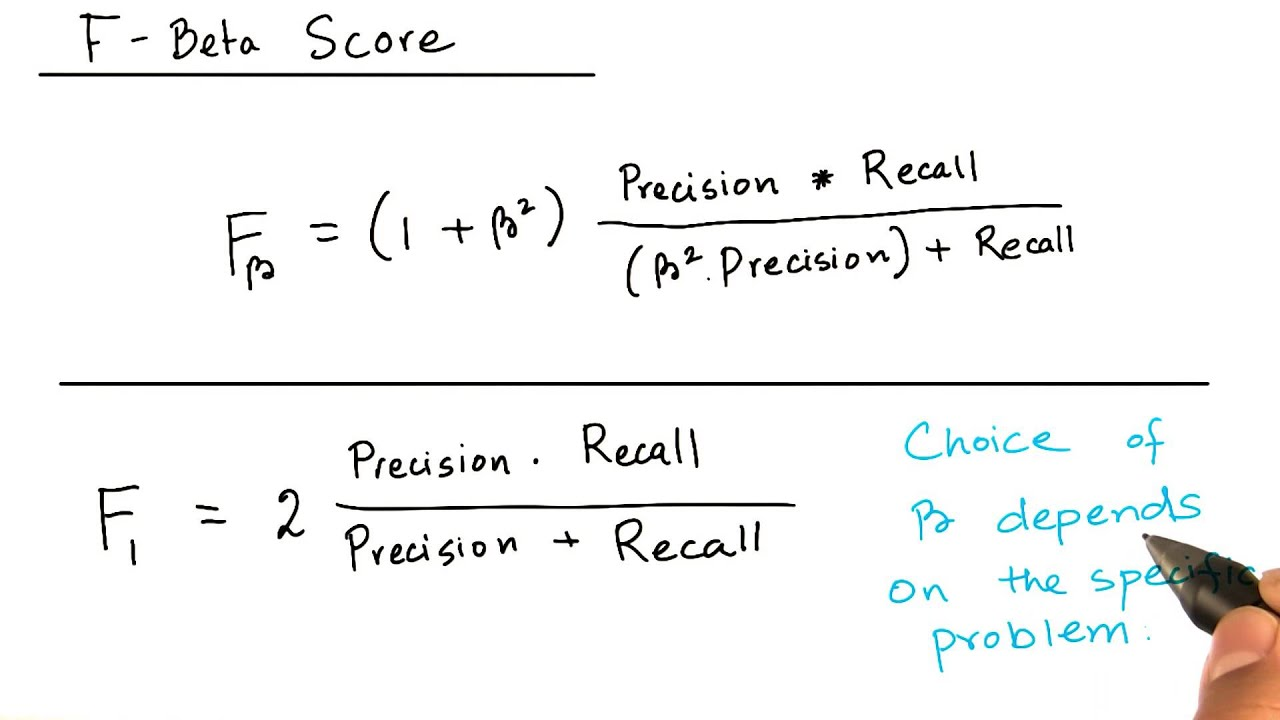 F - Beta Score
Fβ = (1 + β²) Precision * Recall / (β² . Precision) + Recall
F₁ = 2 Precision . Recall / Precision + Recall
Choice of
β depends
on the specific
problem.